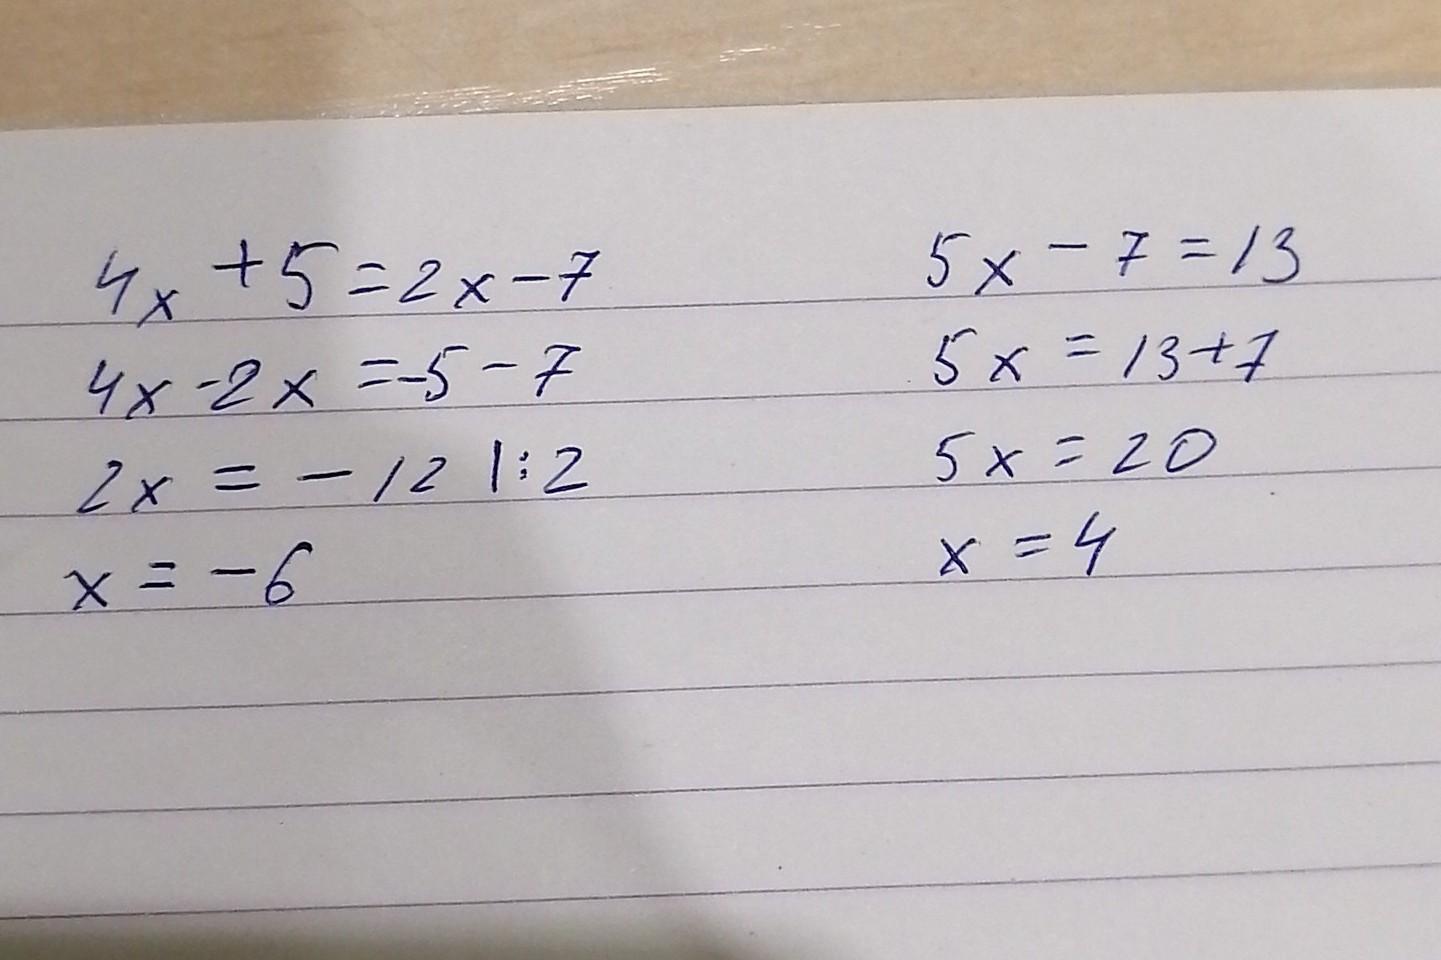 4x + 5 = 2x - 7
4x - 2x = -5 - 7
2x = - 12 |:2
x = - 6
5x - 7 = 13
5x = 13 + 7
5x = 20
x = 4